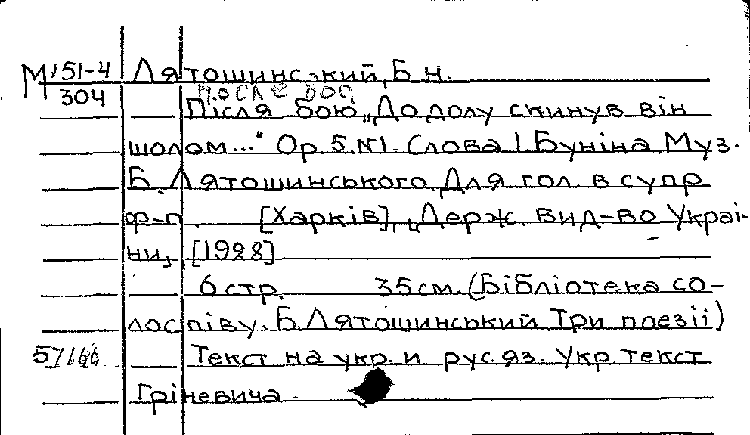 М 51-4 Лятошинський, Б.Н.
304 После боя
Після бою „Додолу скинув він
шолом..." Op.5.№1. Слова І Буніна Муз.
Б. Лятошинського. Для гол. в супр
ф-п. [Харків], „Держ. вид-во Украї-
ни", [1928]
6 стр. 35см. (Бібліотека со-
лоспіву. Б. Лятошинський Три поезії)
Текст на укр. и рус. яз. Укр. текст
Гріневича